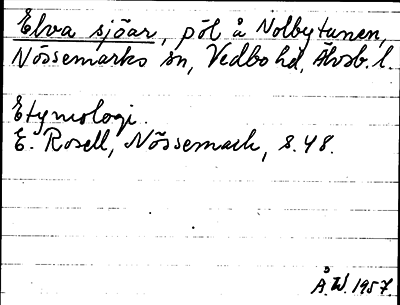 Elva sjöar, pöl å Nolbytunen,
Nössemarks sn, Vedbo hd, Älvsb. l.
Etymologi.
E. Rosell, Nössemark, s. 48.
Å. W. 1957.